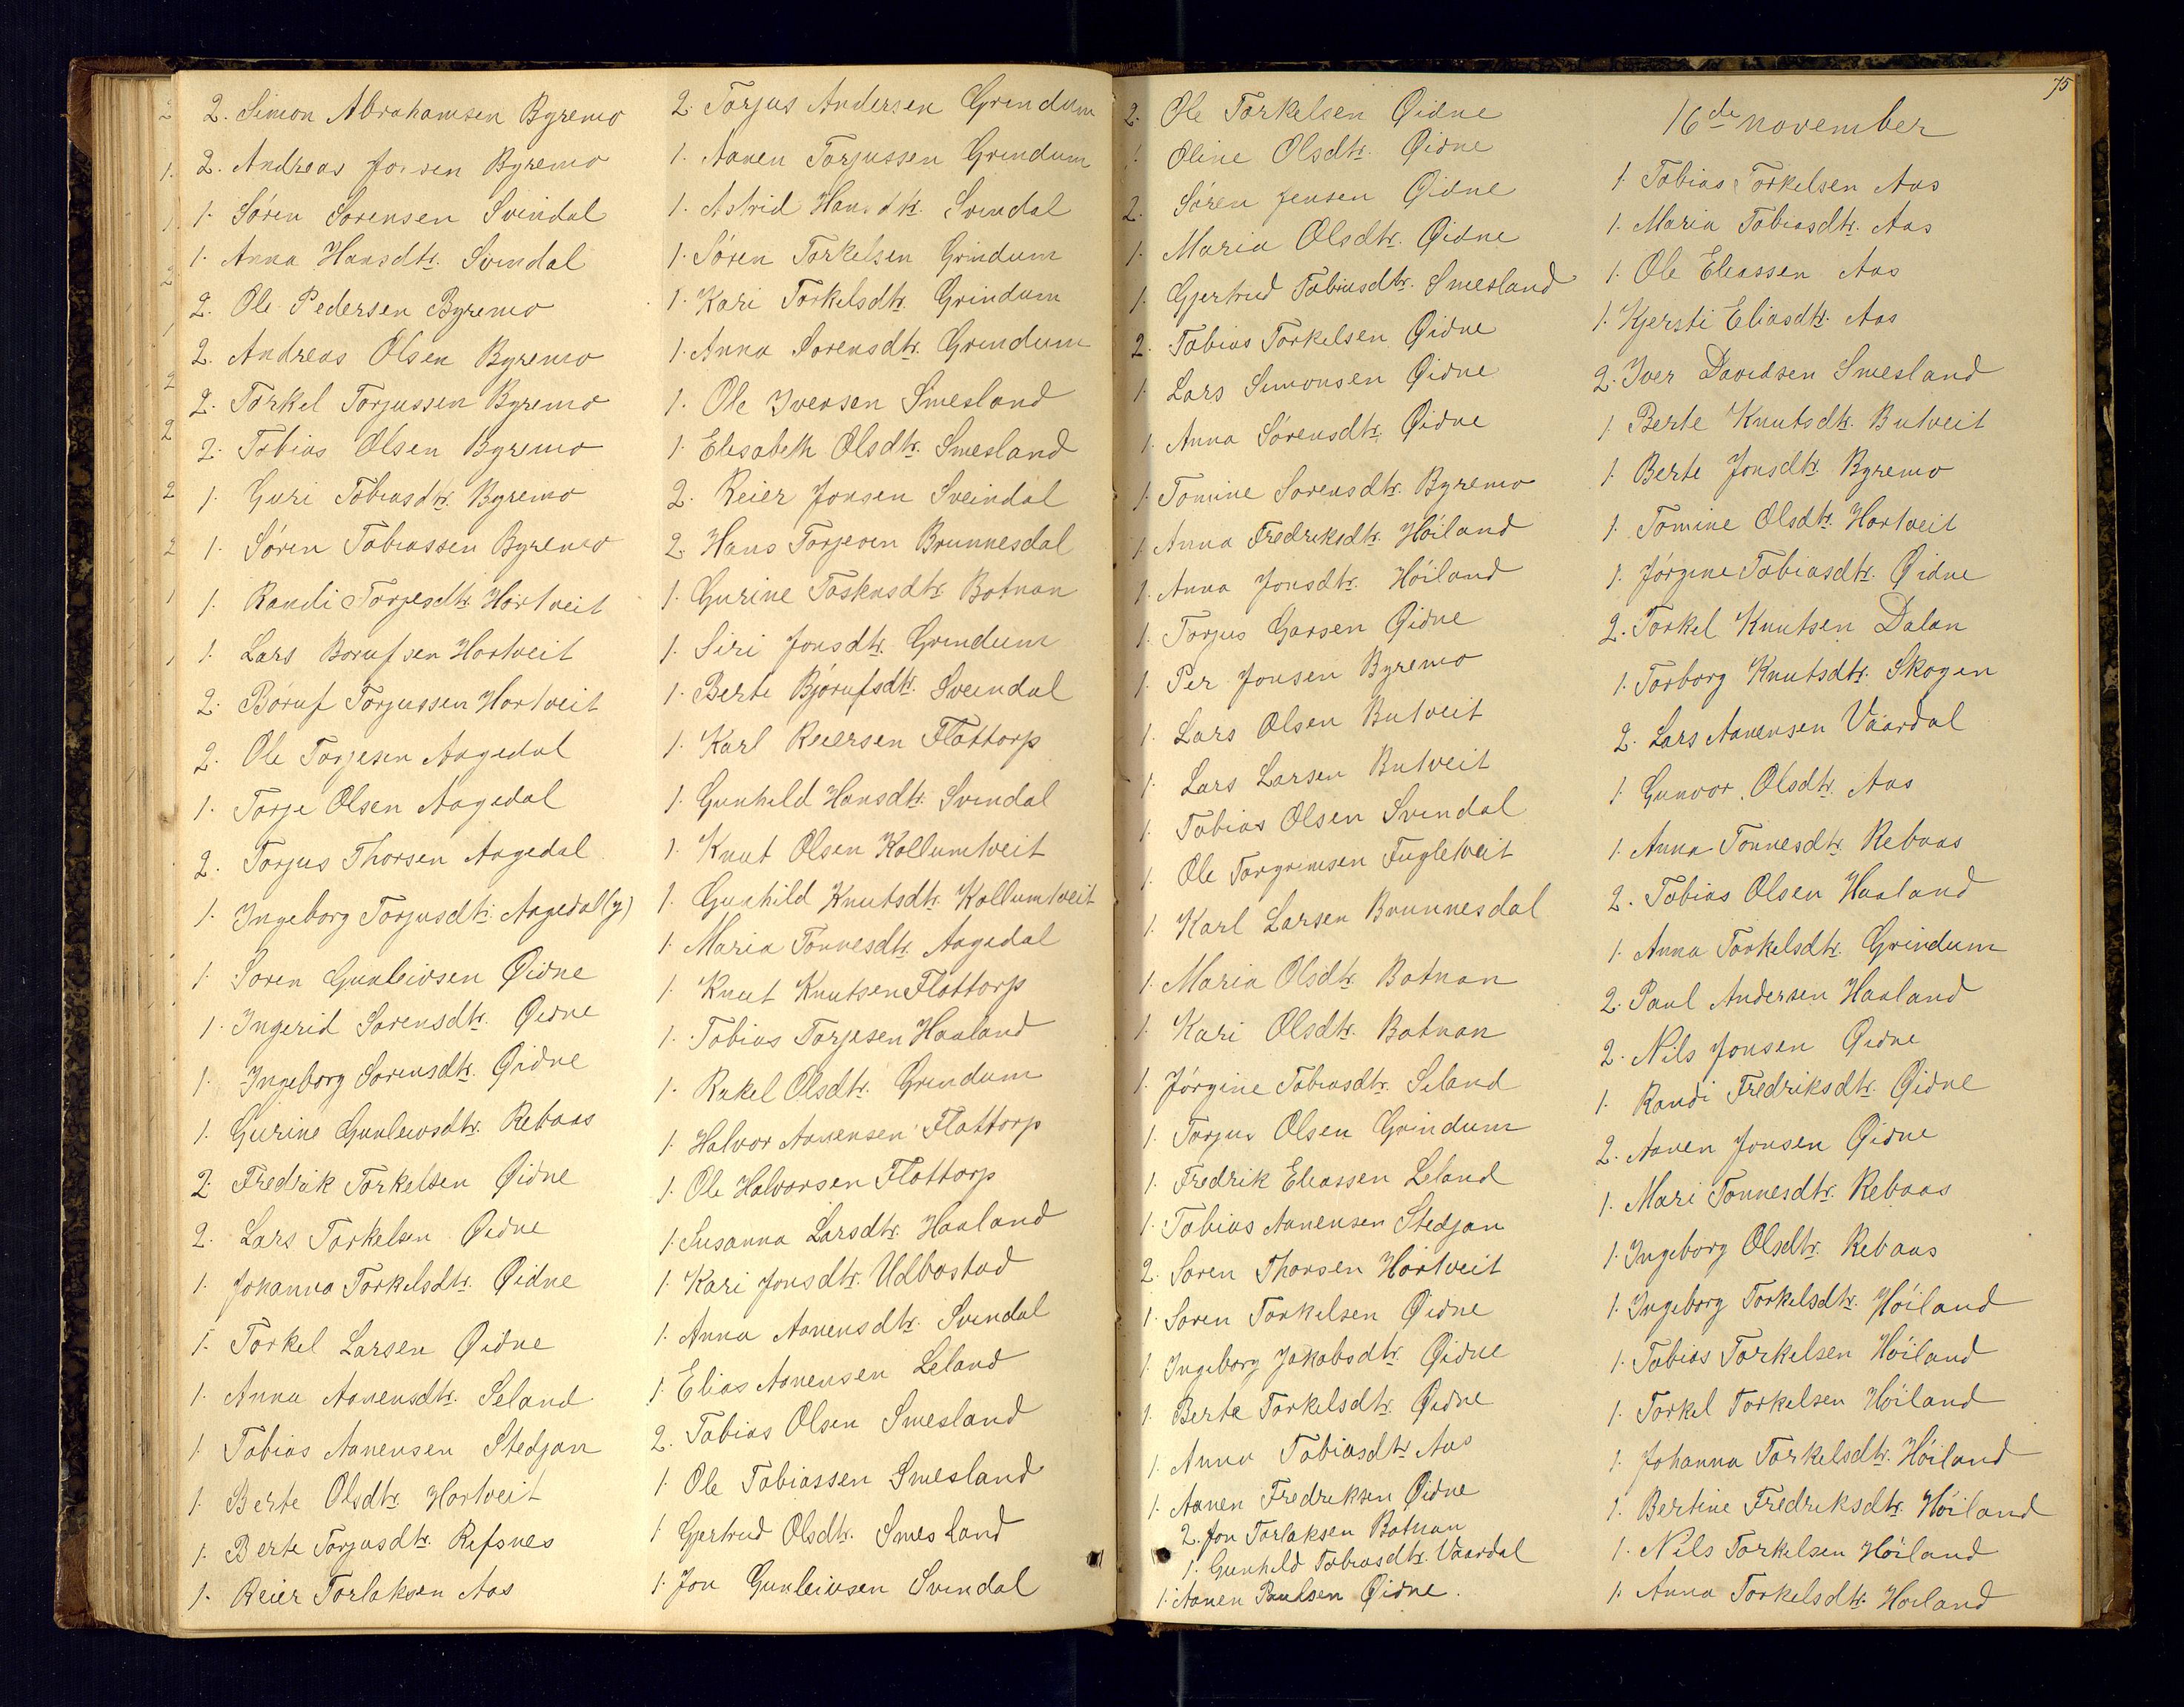 2. Simon Abrahamsen Byremo
2. Andreas Jonsen Byremo
1. Sören Sörensen Svindal
1. Anna Hansdtr. Svindal
2. Ole Pedersen Byremo
2. Andreas Olsen Byremo
2. Torkel Torjussen Byremo
2. Tobias Olsen Byremo
1. Guri Tobiasdtr. Byremo
1. Sören Tobiassen Byremo
1. Randi Torjesdtr. Hortveit
1. Lars Borufsen Hortveit
2. Boruf Torjussen Hortveit
2. Ole Torjesen Aagedal
1. Torje Olsen Aagedal
2. Torjus Thorsen Aagedal
1. Ingeborg Torjusdtr. Aagedal (y)
1. Soren Gunleivsen Øidne
1. Ingerid Sorensdtr. Øidne
1. Ingeborg Sorensdtr. Øidne
1. Gurine Gunleivsdtr. Rebaas
2. Fredrik Torkelsen Øidne
2. Lars Torkelsen Øidne
1. Johanna Torkelsdtr. Øidne
1. Torkel Larsen Øidne
1. Anna Aanensdtr. Seland
1. Tobias Aanensen Stedjan
1. Berte Olsdtr. Hortveit
1. Berte Torjusdtr. Refsnes
1. Reier Torlaksen Aas
2. Torjus Andersen Grindum
1. Aanen Torjussen Grindum
1. Astrid Hansdtr. Svindal
1. Sören Torkelsen Grindum
1. Kari Torkelsdtr. Grindum
1. Anna Sorensdtr. Grindum
1. Ole Iversen Smesland
1. Elisabeth Olsdtr. Smesland
2. Reier Jonsen Sveindal
2. Hans Torjesen Brunnesdal
1. Gurine Botnan
1. Siri Jonsdtr. Grindum
1. Berte Bjórufsdtr. Sveindal
1. Karl Reiersen Flottorp
1. Gunhild Hansdtr. Svindal
1. Knut Olsen Kollumtveit
1. Gunhild Knutsdtr. Kollumtveit
1. Maria Tonnesdtr. Aagedal
1. Knut Knutsen Flottorp
1. Tobias Torjesen Haaland
1. Rakel Olsdtr. Grindum
1. Halvor Aanensen Flottorp
1. Ole Halvorsen Flottorp
1. Susanna Larsdtr. Haaland
1. Kari Jonsdtr. Udbostad
1. Anna Aanensdtr. Svindal
1. Elias Aanensen Leland
2. Tobias Olsen Smesland
1. Ole Tobiassen Smesland
1. Gjertrud Olsdtr. Smesland
1. Jon Gunleivsen Svindal
2. Ole Torkelsen Øidne
1. Oline Olsdtr. Øidne
2. Sören Jensen Øidne
1. Maria Olsdtr. Øidne
1. Gjertrud Tobiasdtr. Smesland
2. Tobias Torkelsen Øidne
1. Lars Simonsen Øidne
1. Anna Sörensdtr. Øidne
1. Tomine Sorensdtr. Byremo
1. Anna Fredriksdtr. Höiland
1. Anna Jonsdtr. Höiland
1. Torjus Øidne
1. Per Jonsen Byremo
1. Lars Olsen Butveit
1. Lars Larsen Butveit
1. Tobias Olsen Svindal
1. Ole Torgrimsen Fugletveit
1. Karl Larsen Brunnesdal
1. Maria Olsdtr. Botnan
1. Kari Olsdtr. Botnan
1. Jörgine Tobiasdtr. Seland
1. Torjus Olsen Grindum
1. Fredrik Eleassen Leland
1. Tobias Aanensen Stedjan
2. Soren Thorsen Hortveit
1. Soren Torkelsen Øidne
1. Ingeborg Jakobsdtr. Øidne
1. Berte Torkelsdtr. Øidne
1. Anna Tobiasdtr Aas
1. Aanen Fredriksen Øidne
2. Jon Torlaksen Botnan
1. Gunhild Tobiasdtr. Vaardal
1. Aanen Paulsen Øidne.
75
16de november
1. Tobias Torkelsen Aas
1. Maria Tobiasdtr. Aas
1. Ole Eleassen Aas
1. Kjersti Eliasdtr. Aas
2. Iver Davidsen Smesland
1. Berte Knutsdtr. Butveit
1. Berte Jonsdtr. Byremo
1. Tomine Olsdtr. Hortveit
1. Jörgine Tobiasdtr. Øidne
2. Torkel Knutsen Dalan
1. Torborg Knutsdtr. Skogen
2. Lars Aanensen Vaardal
1. Gunvor Olsdtr. Aas
1. Anna Tonnesdtr. Rebaas
2. Tobias Olsen Haaland
1. Anna Torkelsdtr. Grindum
2. Paul Andersen Haaland
2. Nils Jonsen Øidne
1. Randi Fredriksdtr. Øidne
2. Aanen Jonsen Øidne
1. Mari Tonnesdtr. Rebaas
1. Ingeborg Olsdtr. Rebaas
1. Ingeborg Torkelsdtr. Höiland
1. Tobias Torkelsen Höiland
1. Torkel Torkelsen Höiland
1. Johanna Torkelsdtr. Höiland
1. Bertine Fredriksdtr. Höiland
1. Nils Torkelsen Höiland
1. Anna Torkelsdtr. Hoiland